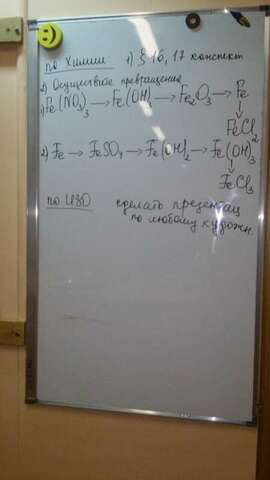 по Химии 1) § 16, 17 конспект
2) Осуществите превращение
1) Fe(NO₃)₃ → Fe(OH) → Fe₂O₃ → Fe
↓
FeCl₂
2) Fe → FeSO₄ → Fe(OH)₂ → Fe(OH)₃
↓
FeCl₃
по ИЗО сделать презентац
по любому художн.